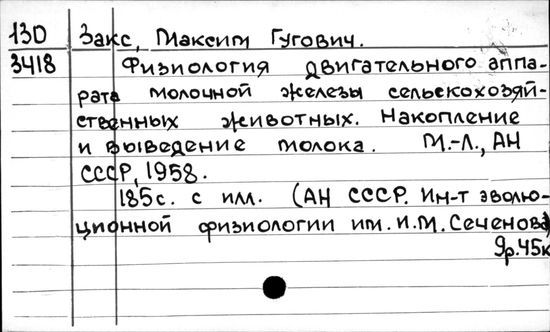 130 Закс, Максим Гугович.
3418 Физиология двигательного аппа-
рата молочной железы сельскохозяй-
ственных животных. Накопление
и выведение молока. М.-Л., АН
СССР, 1958.
185с. с илл. (АН СССР. Ин-т эволю-
ционной физиологии им. И.М. Сеченова)
9р.45к